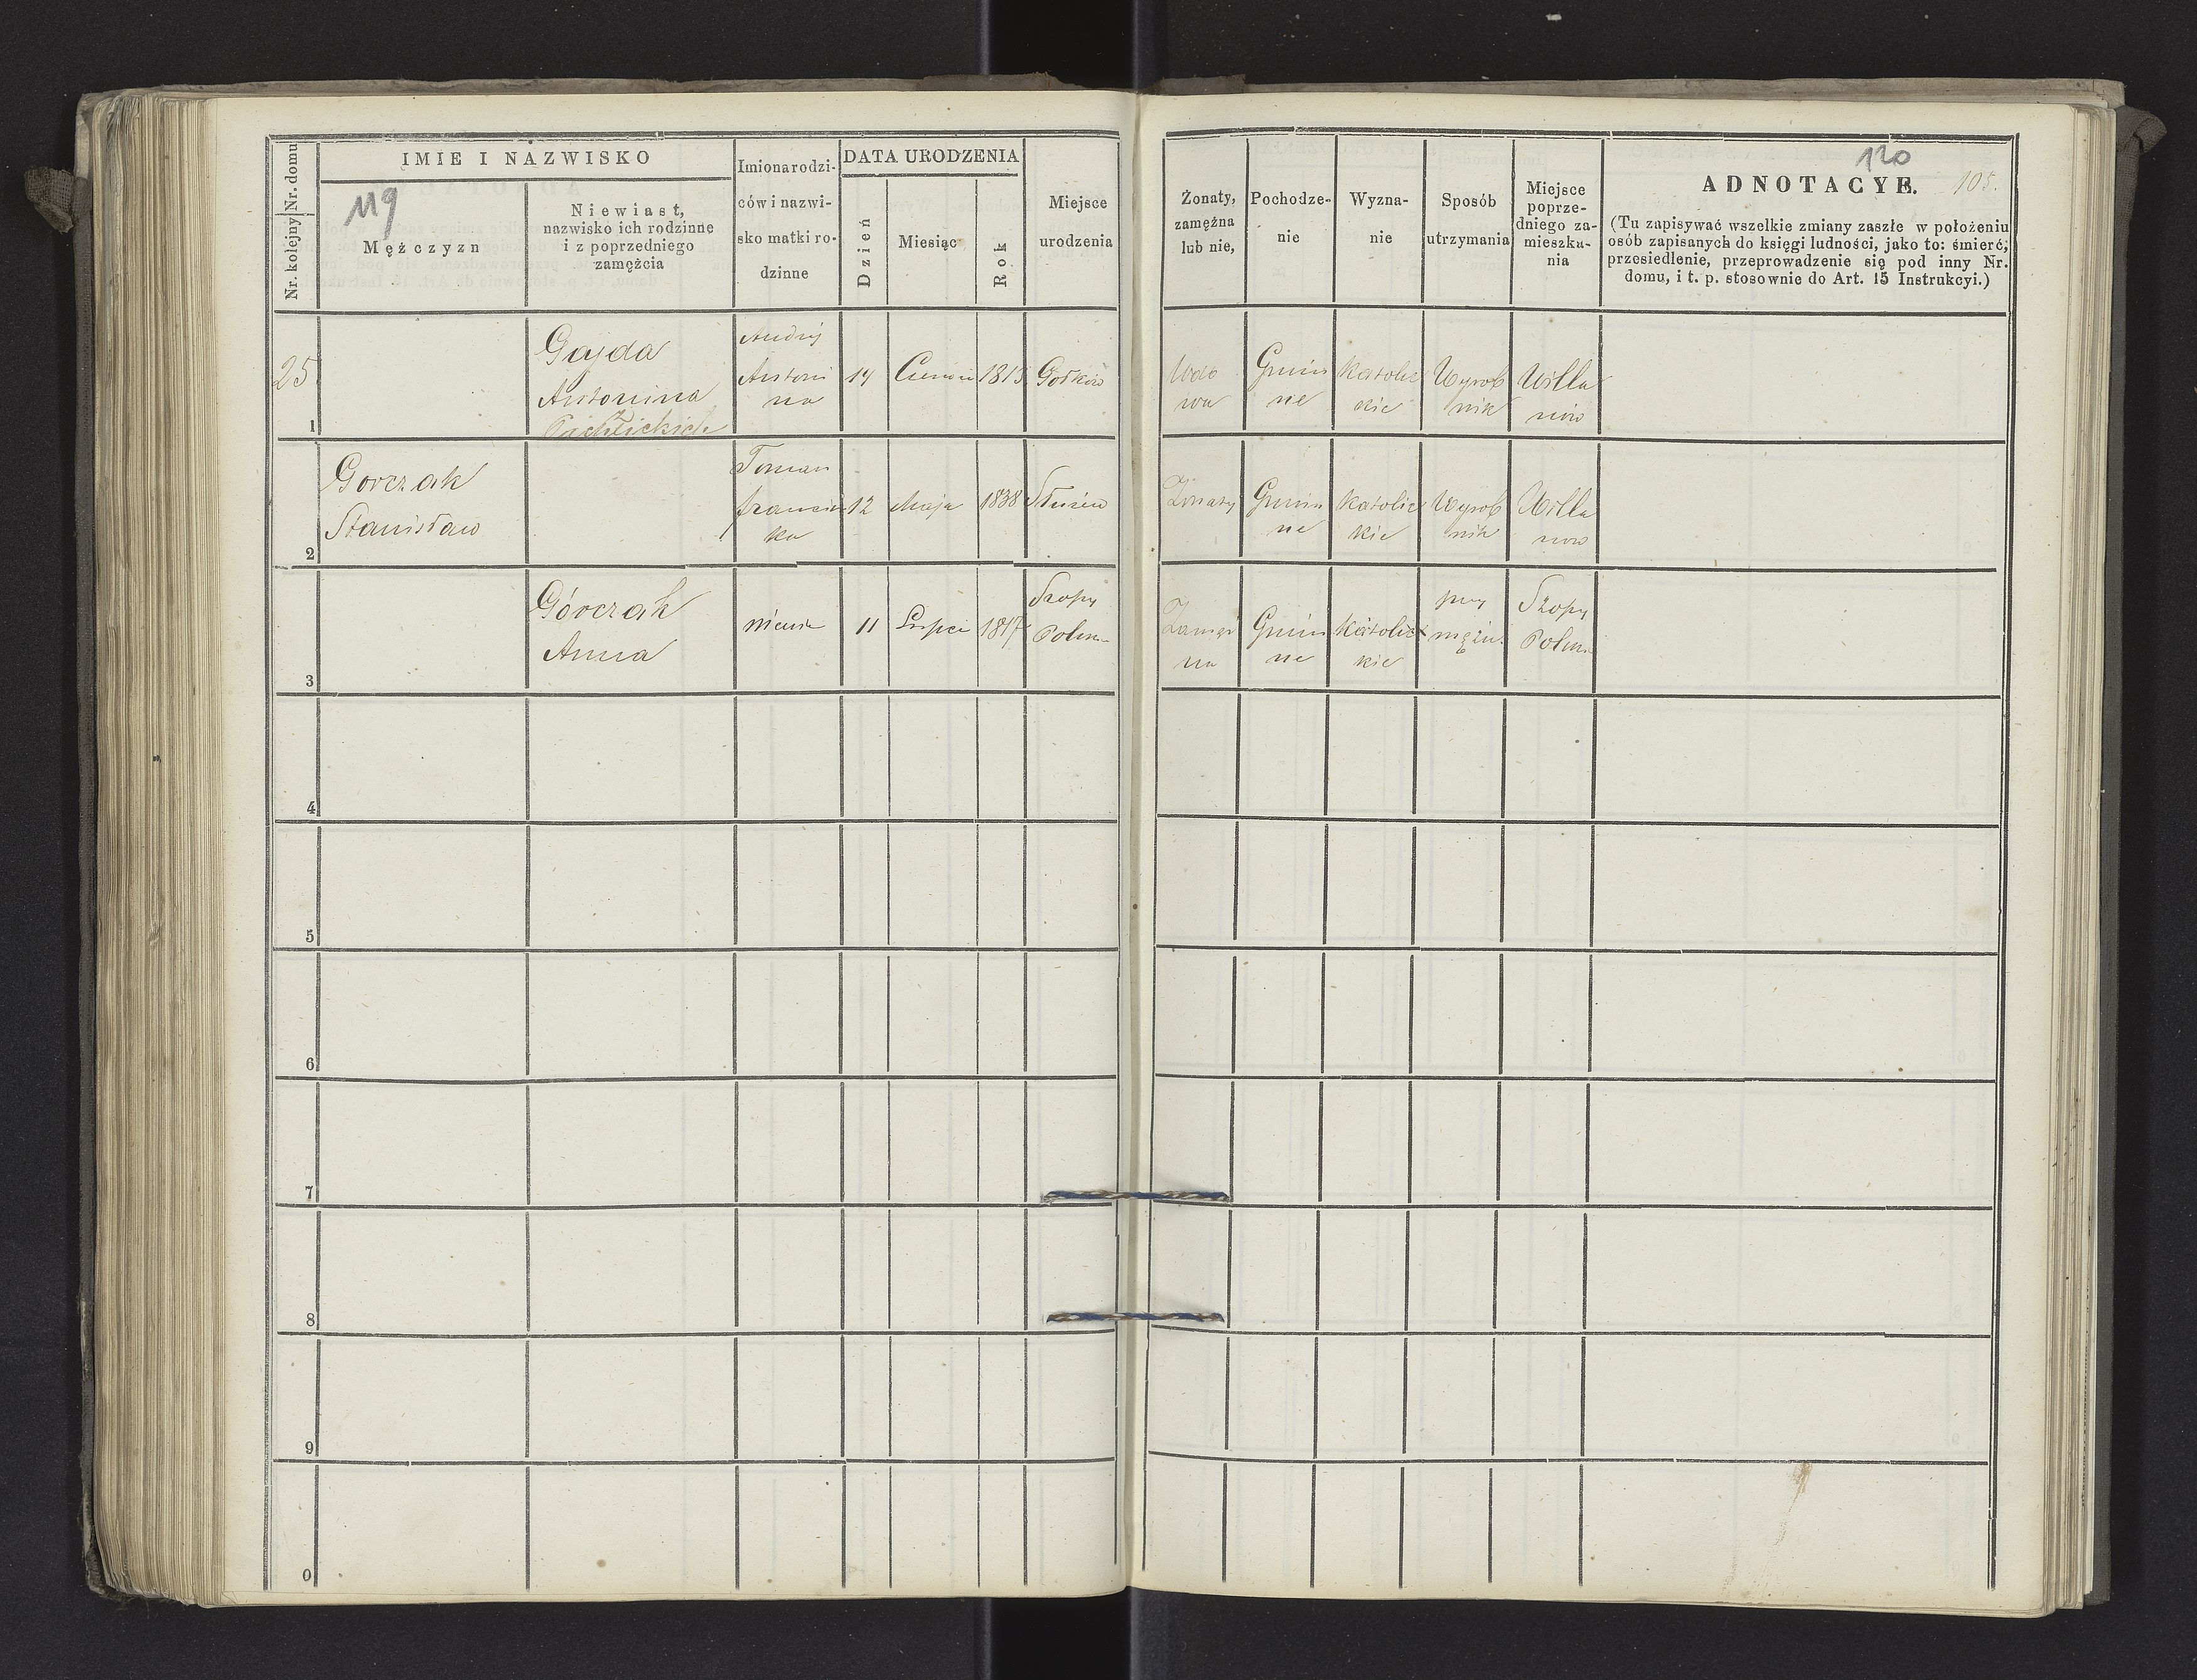 119
Nr. kolejny Nr. domu
IMIE I NAZWISKO
Mężczyzn
Niewiast,
nazwisko ich rodzinne
i z poprzedniego
zamężcia
Imiona rodzi-
ców i nazwi-
sko matki ro-
dzinne
DATA URODZENIA
Dzień
Miesiąc
Rok
Miejsce
urodzenia
25
1
Gajda
Antonina
Andrzj
Antoni
na
14
Czerwic
Gołków
2
Gorczak
Stanisław
Toman
francisz
ka
12
Maja
1838
Służew
3
Górczak
Anna
niewie
11
Lipca
1817
Szopy
Polm-
4
5
6
7
8
9
0
120
Żonaty,
zamężna
lub nie,
Pochodze-
nie
Wyzna-
nie
Sposób
utrzymania
Miejsce
poprze-
dniego za-
mieszka-
nia
ADNOTACYE.
(Tu zapisywać wszelkie zmiany zaszłe w położeniu
osób zapisanych do księgi ludności, jako to: śmierć,
przesiedlenie, przeprowadzenie się pod inny Nr.
domu, i t. p. stosownie do Art. 15 Instrukcyi.)
Wdo
wa
Gmin
ne
Katolic
kie
Wyrob
nik
Willa
now
Żonaty
Gmin
ne
Katolic
kie
Wyrob
nik
Willa
now
Zamęż
na
Gmin
ne
Katolic
kie
przy
mężu.
Szopy
Polm.